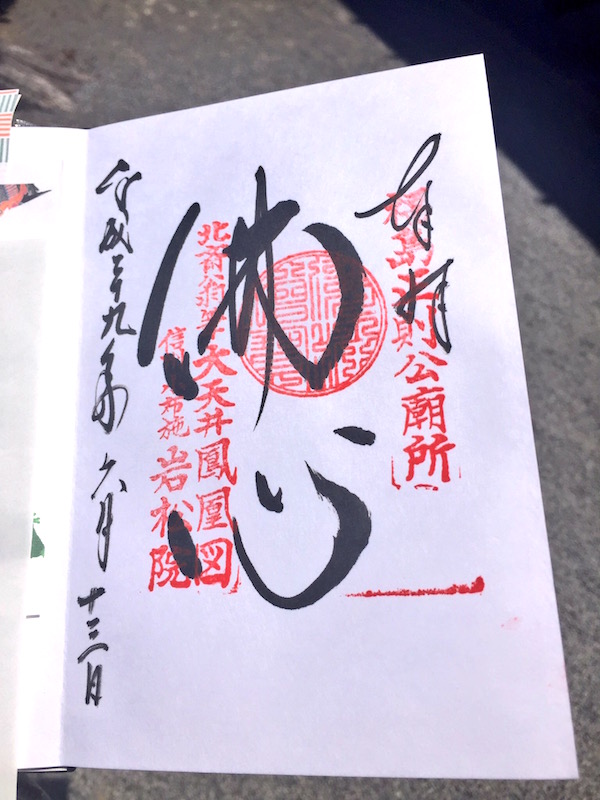 奉拝
福島正則公廟所
佛心
北斎翁筆大天井鳳凰図
信州小布施岩松院
平成二十九年六月十三日